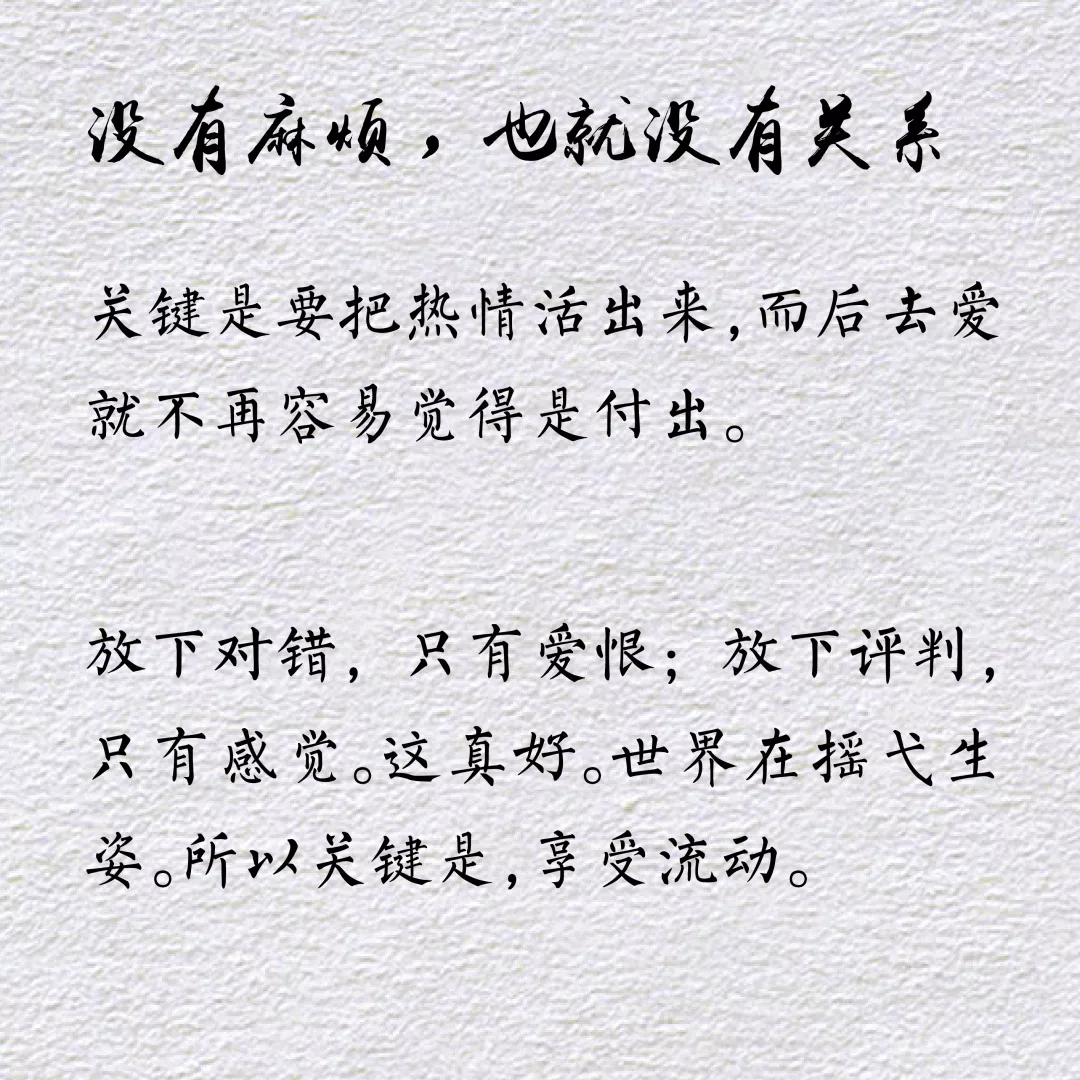 没有麻烦，也就没有关系
关键是要把热情活出来，而后去爱
就不再容易觉得是付出。
放下对错，只有爱恨；放下评判，
只有感觉。这真好。世界在摇弋生
姿。所以关键是，享受流动。